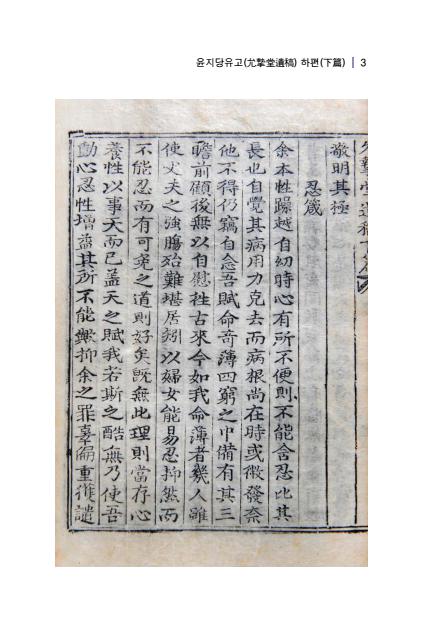 윤지당유고(尤摯堂遺稿) 하편(下篇) | 3
敬明其極
忍箴
余本性躁越自幼時心有所不便則不能含忍比其
長也自覺其病用力克去而病根尚在時或微發奈
他不得仍竊自念吾賦命奇薄四窮之中備有其三
瞻前顧後無以自慰往古來今如我命薄者幾人雖
使丈夫之強腸殆難堪居矧以婦女能易忍抑然而
不能忍而有可免之道則好矣旣無此理則當存心
養性以事天而已蓋天之賦我若斯之酷無乃使吾
動心忍性增益其所不能歟抑余之罪辜偏重獲譴